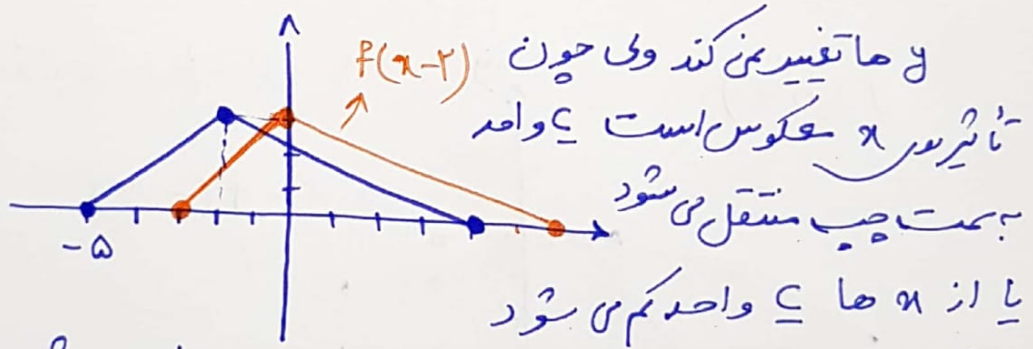 y ها تغییر نمی کند ولی چون
f(x-۲)
تأثیر روی x معکوس است ۲ واحد
به سمت چپ منتقل می شود
-۵
یا از x ها ۲ واحد کم می شود